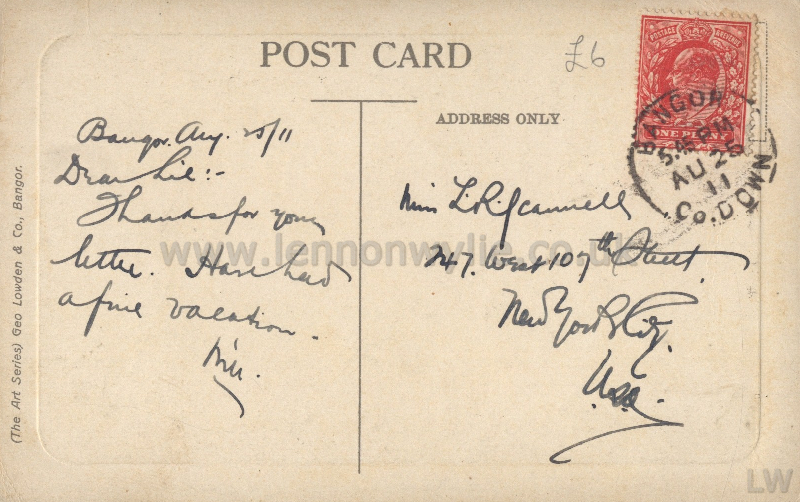 POST CARD
£6
ADDRESS ONLY
POSTAGE REVENUE
ONE PENNY
BANGOR
5.45 PM
AU 25
11
Co. DOWN
Bangor. Aug. 25/11
Dear Lil:-
Thanks for your
letter. Have had
a fine vacation.
Will.
Miss L. R. Scannell
247. West 107th Street
New York City.
U.S.A.
(The Art Series) Geo Lowden & Co., Bangor.
www.lennonwylie.co.uk
LW